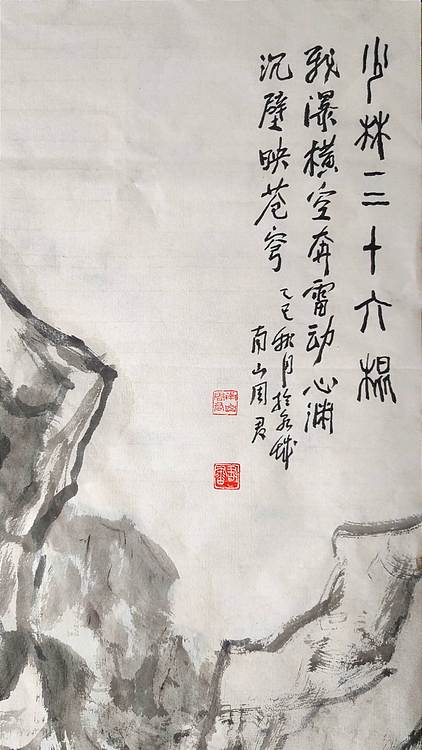 少林三十六棍
瀑横空奔雷动心渊
沉壁映苍穹
乙巳秋月於城
南山周君